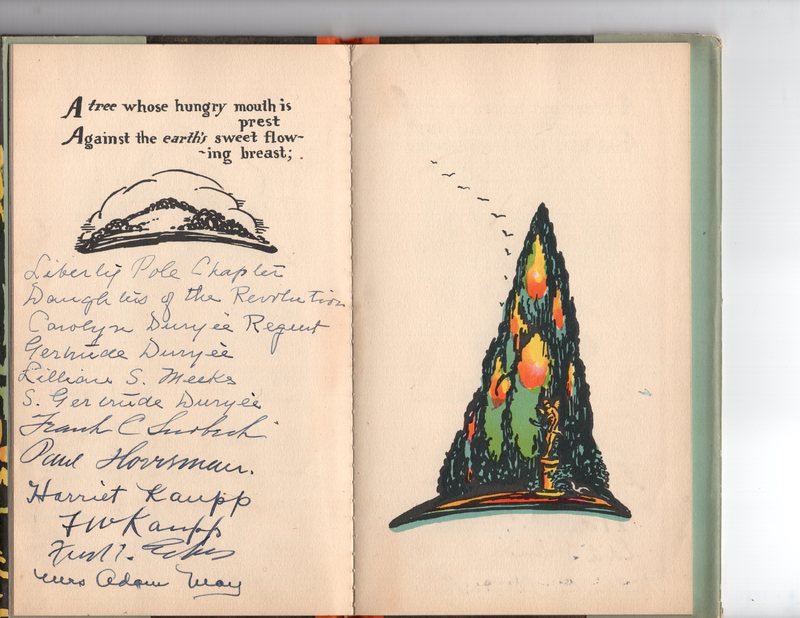 A tree whose hungry mouth is
prest
Against the earth's sweet flow-
-ing breast;
Liberty Pole Chapter
Daughters of the Revolution
Carolyn Duryée Regent
Gertrude Duryée
Lillian S. Meeks
S. Gertrude Duryée
Frank C
Paul Horrsman.
Harriet Kaupp
F W Kaupp
Mrs Adam May